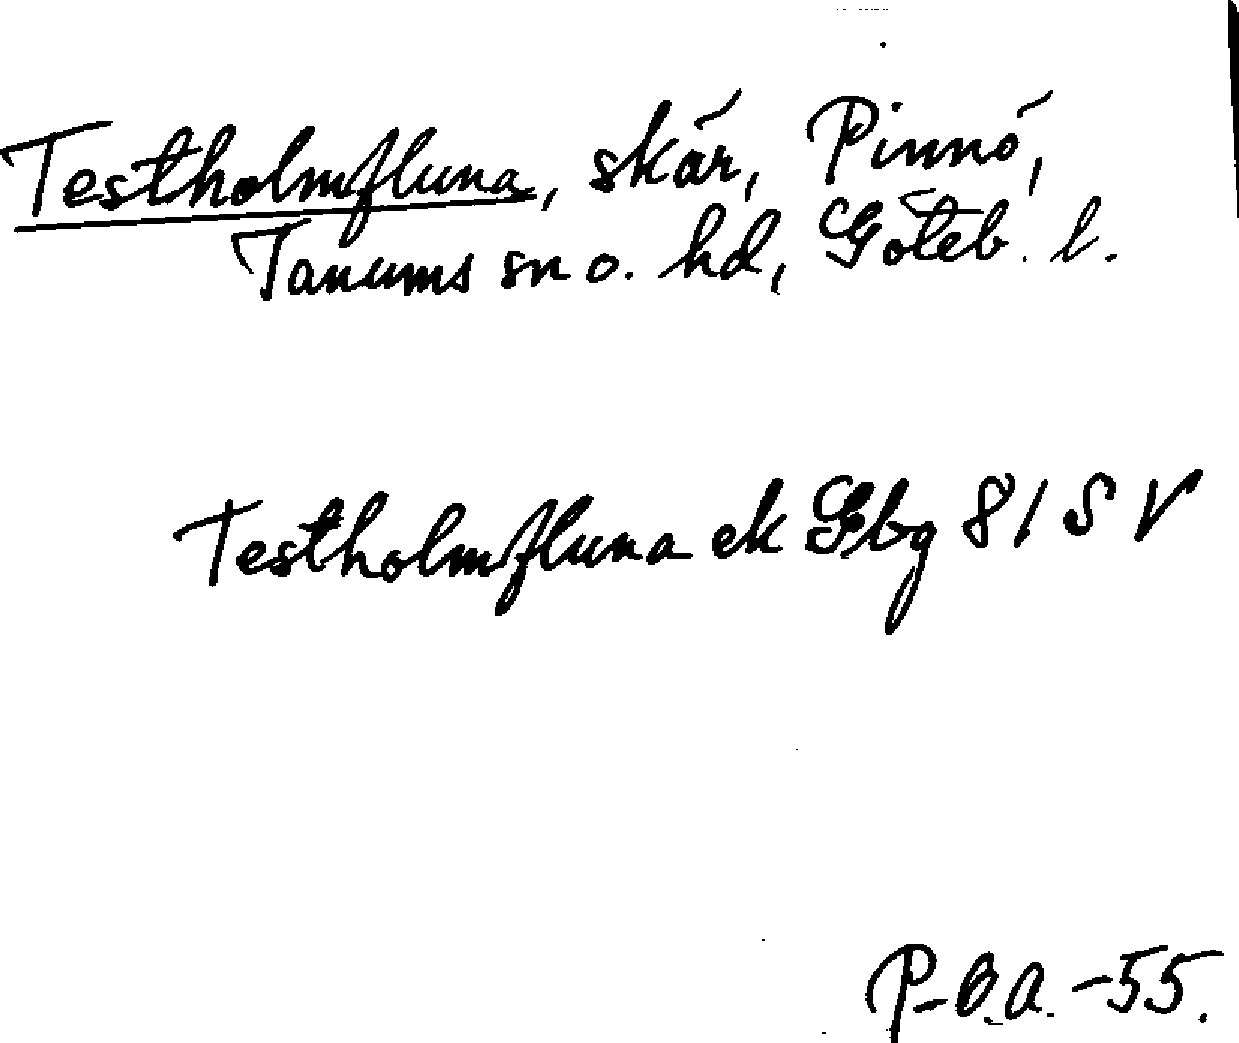 Testholmfluna, skär, Pinnö,
Tanums sn o. hd, Göteb. l.
Testholmfluna ek Gbg 81 SV
P-O.A. -55.